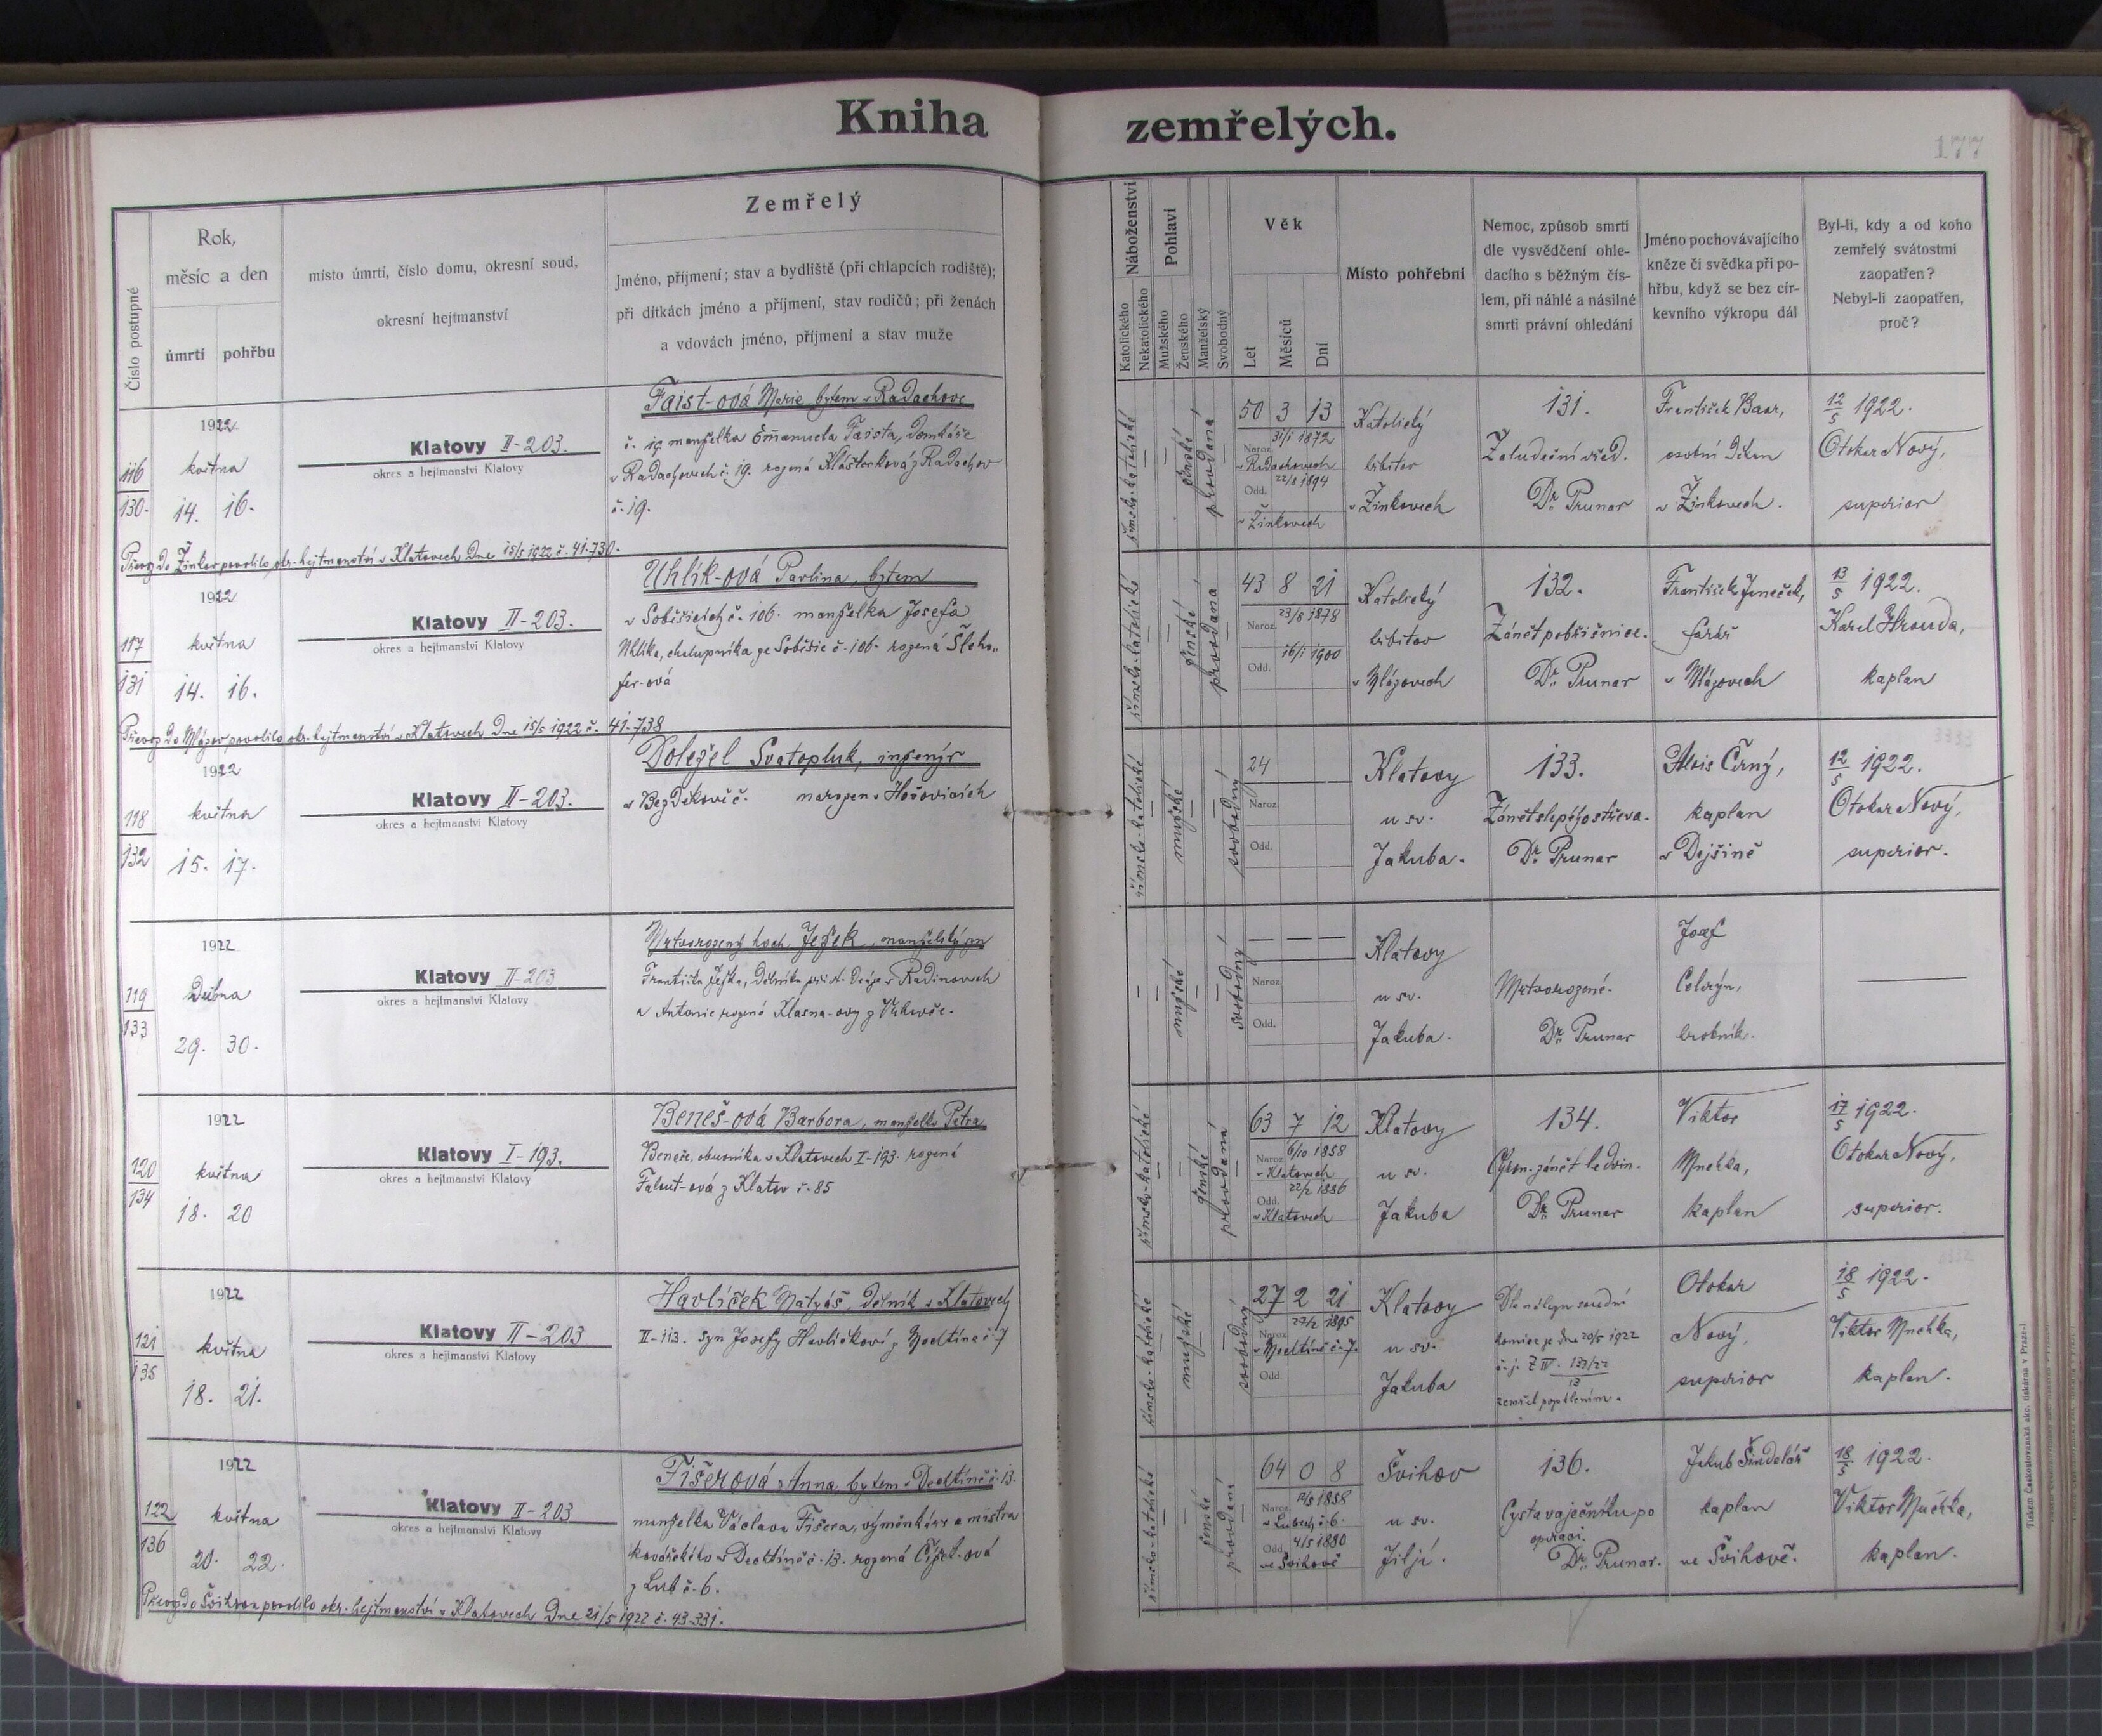 Kniha zemřelých.
177
Číslo postupné
Rok,
měsíc a den
úmrtí
pohřbu
místo úmrtí, číslo domu, okresní soud,
okresní hejtmanství
Zemřelý
Jméno, příjmení; stav a bydliště (při chlapcích rodiště);
při dítkách jméno a příjmení, stav rodičů; při ženách
a vdovách jméno, příjmení a stav muže
Náboženství
Katolického
Nekatolického
Pohlaví
Mužského
Ženského
Manželský
Svobodný
Věk
Let
Měsíců
Dní
Místo pohřební
Nemoc, způsob smrti
dle vysvědčení ohle-
dacího s běžným čís-
lem, při náhlé a násilné
smrti právní ohledání
Jméno pochovávajícího
kněze či svědka při po-
hřbu, když se bez cír-
kevního výkropu dál
Byl-li, kdy a od koho
zemřelý svátostmi
zaopatřen?
Nebyl-li zaopatřen,
proč?
116
130.
1922
května
14. 16.
Klatovy II-203.
okres a hejtmanství Klatovy
Faist-ová Marie bytem v Radochove
č. 19 manželka Emanuela Faista, domkáře
v Radochovech č. 19. rozená Klásterková z Radochov
č. 19.
římsko-katolické
ženské
provdaná
50 3 13
Naroz. 31/1 1872
v Radochovech
Odd. 22/8 1894
v Žinkovech
Katolický
hřbitov
v Žinkovech
131.
Žaludeční vřed.
Dr. Prunar
František Baar,
osobní děkan
v Žinkovech.
12/5 1922.
Otokar Nový,
superior
Převoz do Žinkov povolilo okr. hejtmanství v Klatovech dne 15/5 1922 č. 41.730.
117
131
1922
května
14. 16.
Klatovy II-203.
okres a hejtmanství Klatovy
Uhlík-ová Pavlina, bytem
v Soběšicích č. 106. manželka Josefa
Uhlíka, chalupníka ze Soběšic č. 106. rozená Šleho-
fer-ová
římsko-katolické
ženské
provdaná
43 8 21
Naroz. 23/8 1878
Odd. 16/1 1900
Katolický
hřbitov
v Mlázovech
132.
Zánět pobřišnice.
Dr. Prunar
František Jeneček,
farář
v Mlázovech
13/5 1922.
Karel Hrouda,
kaplan
Převoz do Mlázov povolilo okr. hejtmanství v Klatovech dne 15/5 1922 č. 41.738
118
132
1922
května
15. 17.
Klatovy II-203.
okres a hejtmanství Klatovy
Doležel Svatopluk, inženýr
v Bezděkově č. narozen v Hořovicích
římsko-katolické
mužské
svobodný
24
Naroz.
Odd.
Klatovy
u sv.
Jakuba.
133.
Zánět slepého střeva.
Dr. Prunar
Alois Černý,
kaplan
v Dejšině
12/5 1922.
Otokar Nový,
superior.
119
133
1922
Dubna
29. 30.
Klatovy II-203
okres a hejtmanství Klatovy
Mrtvorozený hoch Ježek, manželský syn
Františka Ježka, dělníka při st. dráze v Radinovech
a Antonie rozené Klasna-ovy z Vrhavče.
mužské
svobodný
— — —
Naroz.
Odd.
Klatovy
u sv.
Jakuba.
Mrtvorozené.
Dr. Prunar
Josef
Celerýn,
hrobník.
—
120
134
1922
května
18. 20
Klatovy I-193.
okres a hejtmanství Klatovy
Beneš-ová Barbora, manželka Petra
Beneše, obuvníka v Klatovech I-193. rozená
Falout-ová z Klatov č. 85
římsko-katolické
ženské
provdaná
63 7 12
Naroz. 6/10 1858
v Klatovech
Odd. 22/2 1886
v Klatovech
Klatovy
u sv.
Jakuba
134.
Chron. zánět ledvin.
Dr. Prunar
Viktor
Muchka,
kaplan
17/5 1922.
Otokar Nový,
superior.
121
135
1922
května
18. 21.
Klatovy II-203
okres a hejtmanství Klatovy
Havlíček Matyáš, dělník v Klatovech
II-113. syn Josefy Havlíčkové z Mochtína č. 7
římsko-katolické
mužské
svobodný
27 2 21
Naroz. 27/2 1895
v Mochtíně č. 7.
Odd.
Klatovy
u sv.
Jakuba
Dle nálezu soudní
komise ze dne 20/5 1922
č. j. Z IV. 133/22
13
zemřel popálením.
Otokar
Nový,
superior
18/5 1922.
Viktor Muchka,
kaplan.
122
136
1922
května
20. 22.
Klatovy II-203
okres a hejtmanství Klatovy
Fišerová Anna bytem v Dechtíně č. 13.
manželka Václava Fišera, výměnkáře a mistra
kovářského v Dechtíně č. 13. rozená
z Lub č. 6.
římsko-katolické
ženské
provdaná
64 0 8
Naroz. 12/5 1858
v Lubech č. 6.
Odd. 4/5 1880
ve Švihově
Švihov
u sv.
Jiljí.
136.
Cysta vaječníku po
operaci.
Dr. Prunar.
Jakub Šindelář
kaplan
ve Švihově.
18/5 1922.
Viktor Muchka,
kaplan.
Převoz do Švihova povolilo okr. hejtmanství v Klatovech dne 21/5 1922 č. 43.331.
Tiskem Českoslovanská akc. tiskárna v Praze-I.